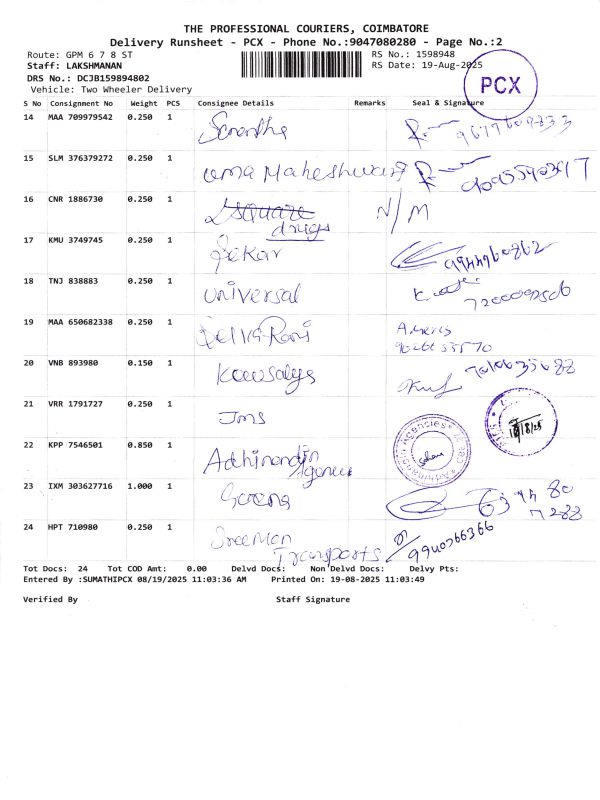 THE PROFESSIONAL COURIERS, COIMBATORE
Delivery Runsheet - PCX - Phone No.:9047080280 - Page No.:2
Route: GPM 6 7 8 ST
RS No.: 1598948
Staff: LAKSHMANAN
RS Date: 19-Aug-2025
DRS No.: DCJB159894802
PCX
Vehicle: Two Wheeler Delivery
S No Consignment No Weight PCS Consignee Details Remarks Seal & Signature
14 MAA 709979542 0.250 1
15 SLM 376379272 0.250 1 uma Maheshwari
16 CNR 1886730 0.250 1 square N/M
drugs
17 KMU 3749745 0.250 1 Sekar 9944960862
18 TNJ 838883 0.250 1 Universal 7200092506
19 MAA 650682338 0.250 1
20 VNB 893980 0.150 1 Kowsalya
21 VRR 1791727 0.250 1 Jms
22 KPP 7546501 0.850 1 Adhinandin
Agencies
23 IXM 303627716 1.000 1
24 HPT 710980 0.250 1 Sree Man 9940766366
Transports
Tot Docs: 24 Tot COD Amt: 0.00 Delvd Docs: Non Delvd Docs: Delvy Pts:
Entered By :SUMATHIPCX 08/19/2025 11:03:36 AM Printed On: 19-08-2025 11:03:49
Verified By Staff Signature